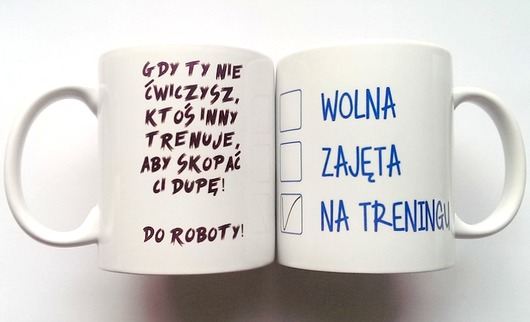 GDY TY NIE
ĆWICZYSZ,
KTOŚ INNY
TRENUJE,
ABY SKOPAĆ
CI DUPĘ!
DO ROBOTY!
WOLNA
ZAJĘTA
NA TRENINGU